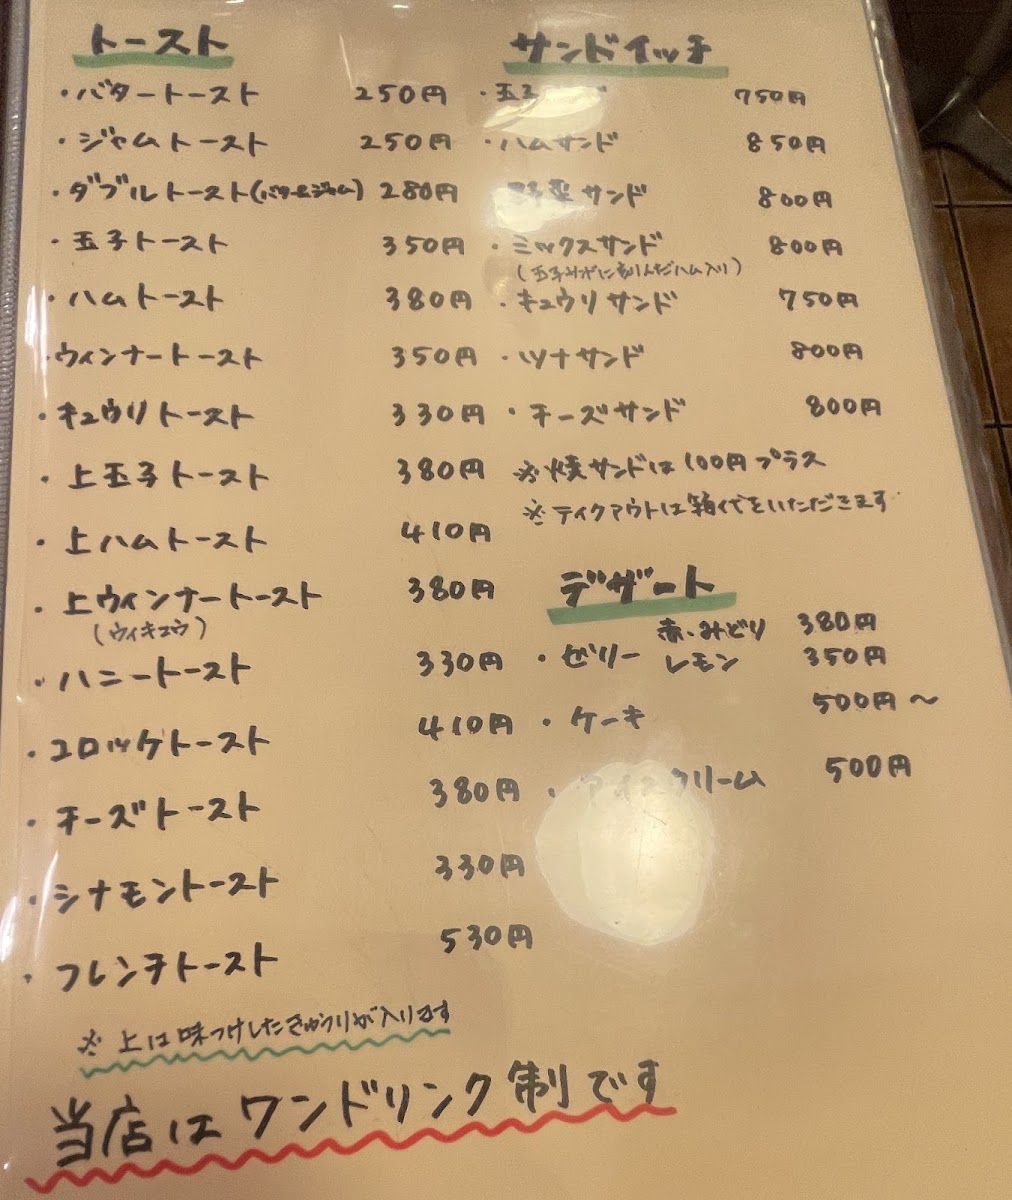 トースト
・バタートースト 250円
・ジャムトースト 250円
・ダブルトースト(バターとジャム) 280円
・玉子トースト 350円
・ハムトースト 380円
・ウィンナートースト 350円
・キュウリトースト 330円
・上玉子トースト 380円
・上ハムトースト 410円
・上ウィンナートースト 380円
(ウィキュウ)
・ハニートースト 330円
・コロッケトースト 410円
・チーズトースト 380円
・シナモントースト 330円
・フレンチトースト 530円
※上は味つけしたきゅうりが入ります
サンドイッチ
・玉子 750円
・ハムサンド 850円
野菜サンド 800円
・ミックスサンド 800円
(玉子 みじんに ハム入り)
・キュウリサンド 750円
・ツナサンド 800円
・チーズサンド 800円
※焼サンドは100円プラス
※テイクアウトは箱代をいただきます
デザート
・ゼリー 赤・みどり 380円
レモン 350円
・ケーキ 500円〜
・アイスクリーム 500円
当店はワンドリンク制です